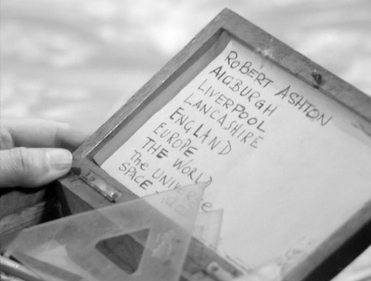 ROBERT ASHTON
AIGBURGH
LIVERPOOL
LANCASHIRE
ENGLAND
EUROPE
THE WORLD
The UNIVERSE
SPACE